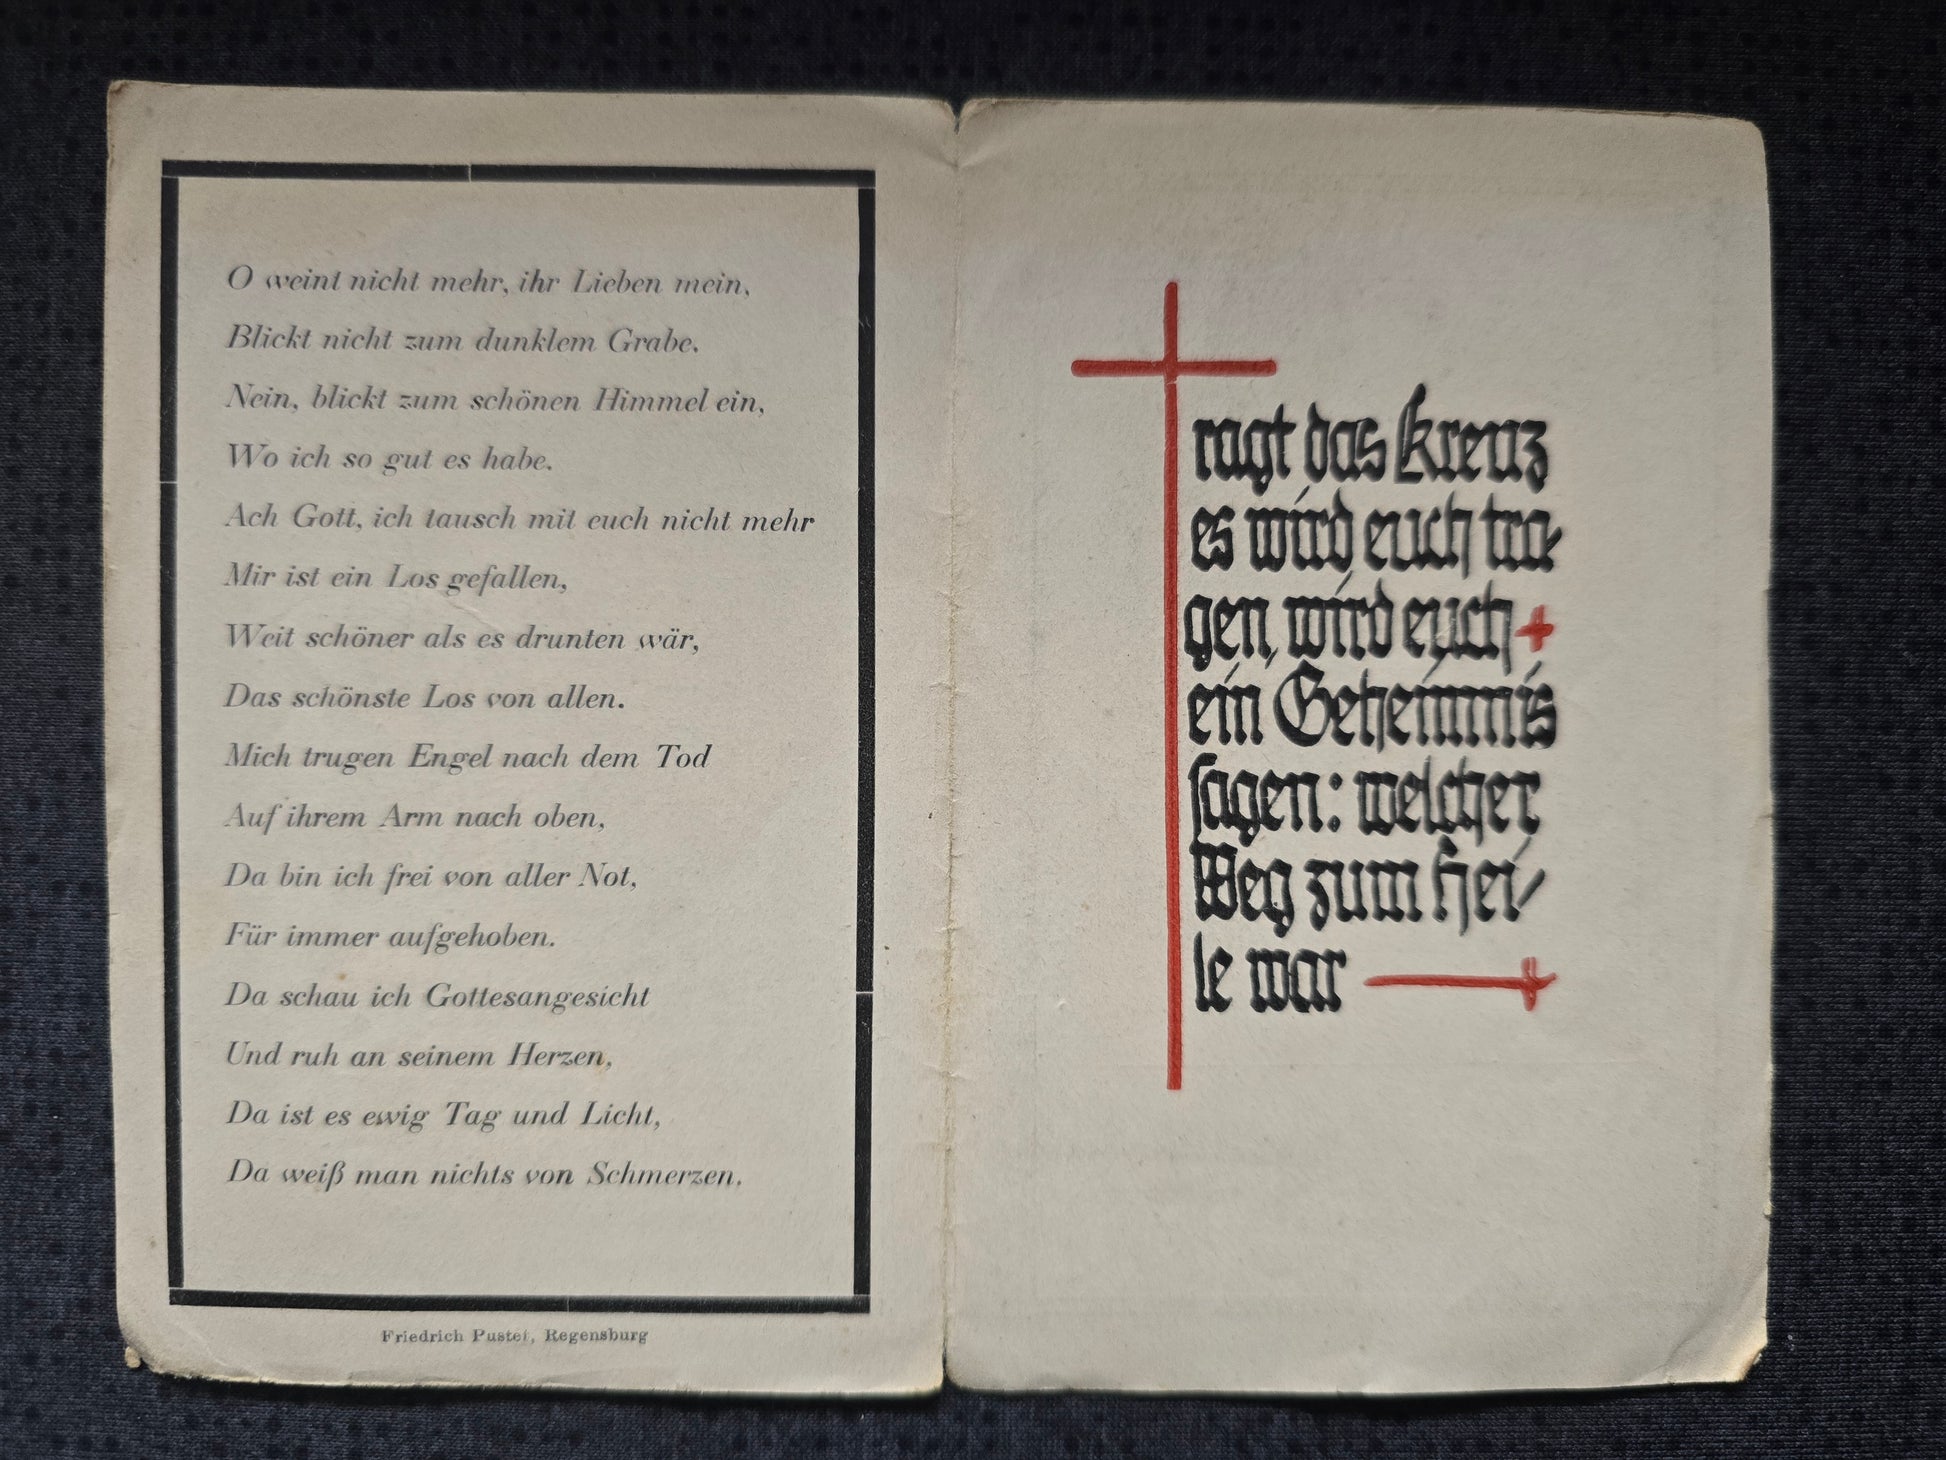 O weint nicht mehr, ihr Lieben mein,
Blickt nicht zum dunklem Grabe.
Nein, blickt zum schönen Himmel ein,
Wo ich so gut es habe.
Ach Gott, ich tausch mit euch nicht mehr
Mir ist ein Los gefallen,
Weit schöner als es drunten wär,
Das schönste Los von allen.
Mich trugen Engel nach dem Tod
Auf ihrem Arm nach oben,
Da bin ich frei von aller Not,
Für immer aufgehoben.
Da schau ich Gottesangesicht
Und ruh an seinem Herzen,
Da ist es ewig Tag und Licht,
Da weiß man nichts von Schmerzen.
Friedrich Pustet, Regensburg
Tragt das Kreuz
es wird euch tra-
gen, wird euch
ein Geheimnis
sagen: welcher
Weg zum Hei-
le war